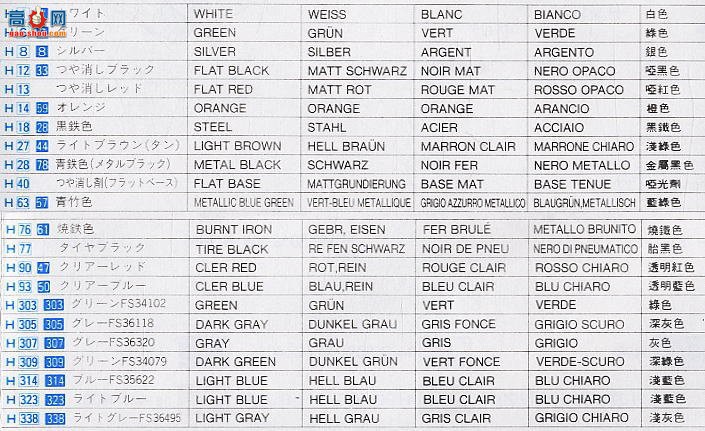 H ワイト WHITE WEISS BLANC BIANCO 白色
H リーン GREEN GRÜN VERT VERDE 綠色
H 8 8 シルバー SILVER SILBER ARGENT ARGENTO 銀色
H 12 33 つや消しブラック FLAT BLACK MATT SCHWARZ NOIR MAT NERO OPACO 啞黑色
H 13 つや消しレッド FLAT RED MATT ROT ROUGE MAT ROSSO OPACO 啞紅色
H 14 59 オレンジ ORANGE ORANGE ORANGE ARANCIO 橙色
H 18 28 黒鉄色 STEEL STAHL ACIER ACCIAIO 黑鐵色
H 27 44 ライトブラウン(タン) LIGHT BROWN HELL BRAÜN MARRON CLAIR MARRONE CHIARO 淺綠色
H 28 78 青鉄色(メタルブラック) METAL BLACK SCHWARZ NOIR FER NERO METALLO 金屬黑色
H 40 つや消し剤(フラットベース) FLAT BASE MATTGRUNDIERUNG BASE MAT BASE TENUE 啞光劑
H 63 57 青竹色 METALLIC BLUE GREEN VERT-BLEU METALLIQUE GRIGIO AZZURRO METALLICO BLAUGRÜN,METALLISCH 藍綠色
H 76 61 焼鉄色 BURNT IRON GEBR, EISEN FER BRULÉ METALLO BRUNITO 燒鐵色
H 77 タイヤブラック TIRE BLACK RE FEN SCHWARZ NOIR DE PNEU NERO DI PNEUMATICO 胎黑色
H 90 47 クリアーレッド CLER RED ROT,REIN ROUGE CLAIR ROSSO CHIARO 透明紅色
H 93 50 クリアーブルー CLER BLUE BLAU,REIN BLEU CLAIR BLU CHIARO 透明藍色
H 303 303 グリーンFS34102 GREEN GRÜN VERT VERDE 綠色
H 305 305 グレーFS36118 DARK GRAY DUNKEL GRAU GRIS FONCE GRIGIO SCURO 深灰色
H 307 307 グレーFS36320 GRAY GRAU GRIS GRIGIO 灰色
H 309 309 グリーンFS34079 DARK GREEN DUNKEL GRÜN VERT FONCE VERDE-SCURO 深綠色
H 314 314 ブルーFS35622 LIGHT BLUE HELL BLAU BLEU CLAIR BLU CHIARO 淺藍色
H 323 323 ライトブルー LIGHT BLUE HELL BLAU BLEU CLAIR BLU CHIARO 淺藍色
H 338 338 ライトグレーFS36495 LIGHT GRAY HELL GRAU GRIS CLAIR GRIGIO CHIARO 淺灰色